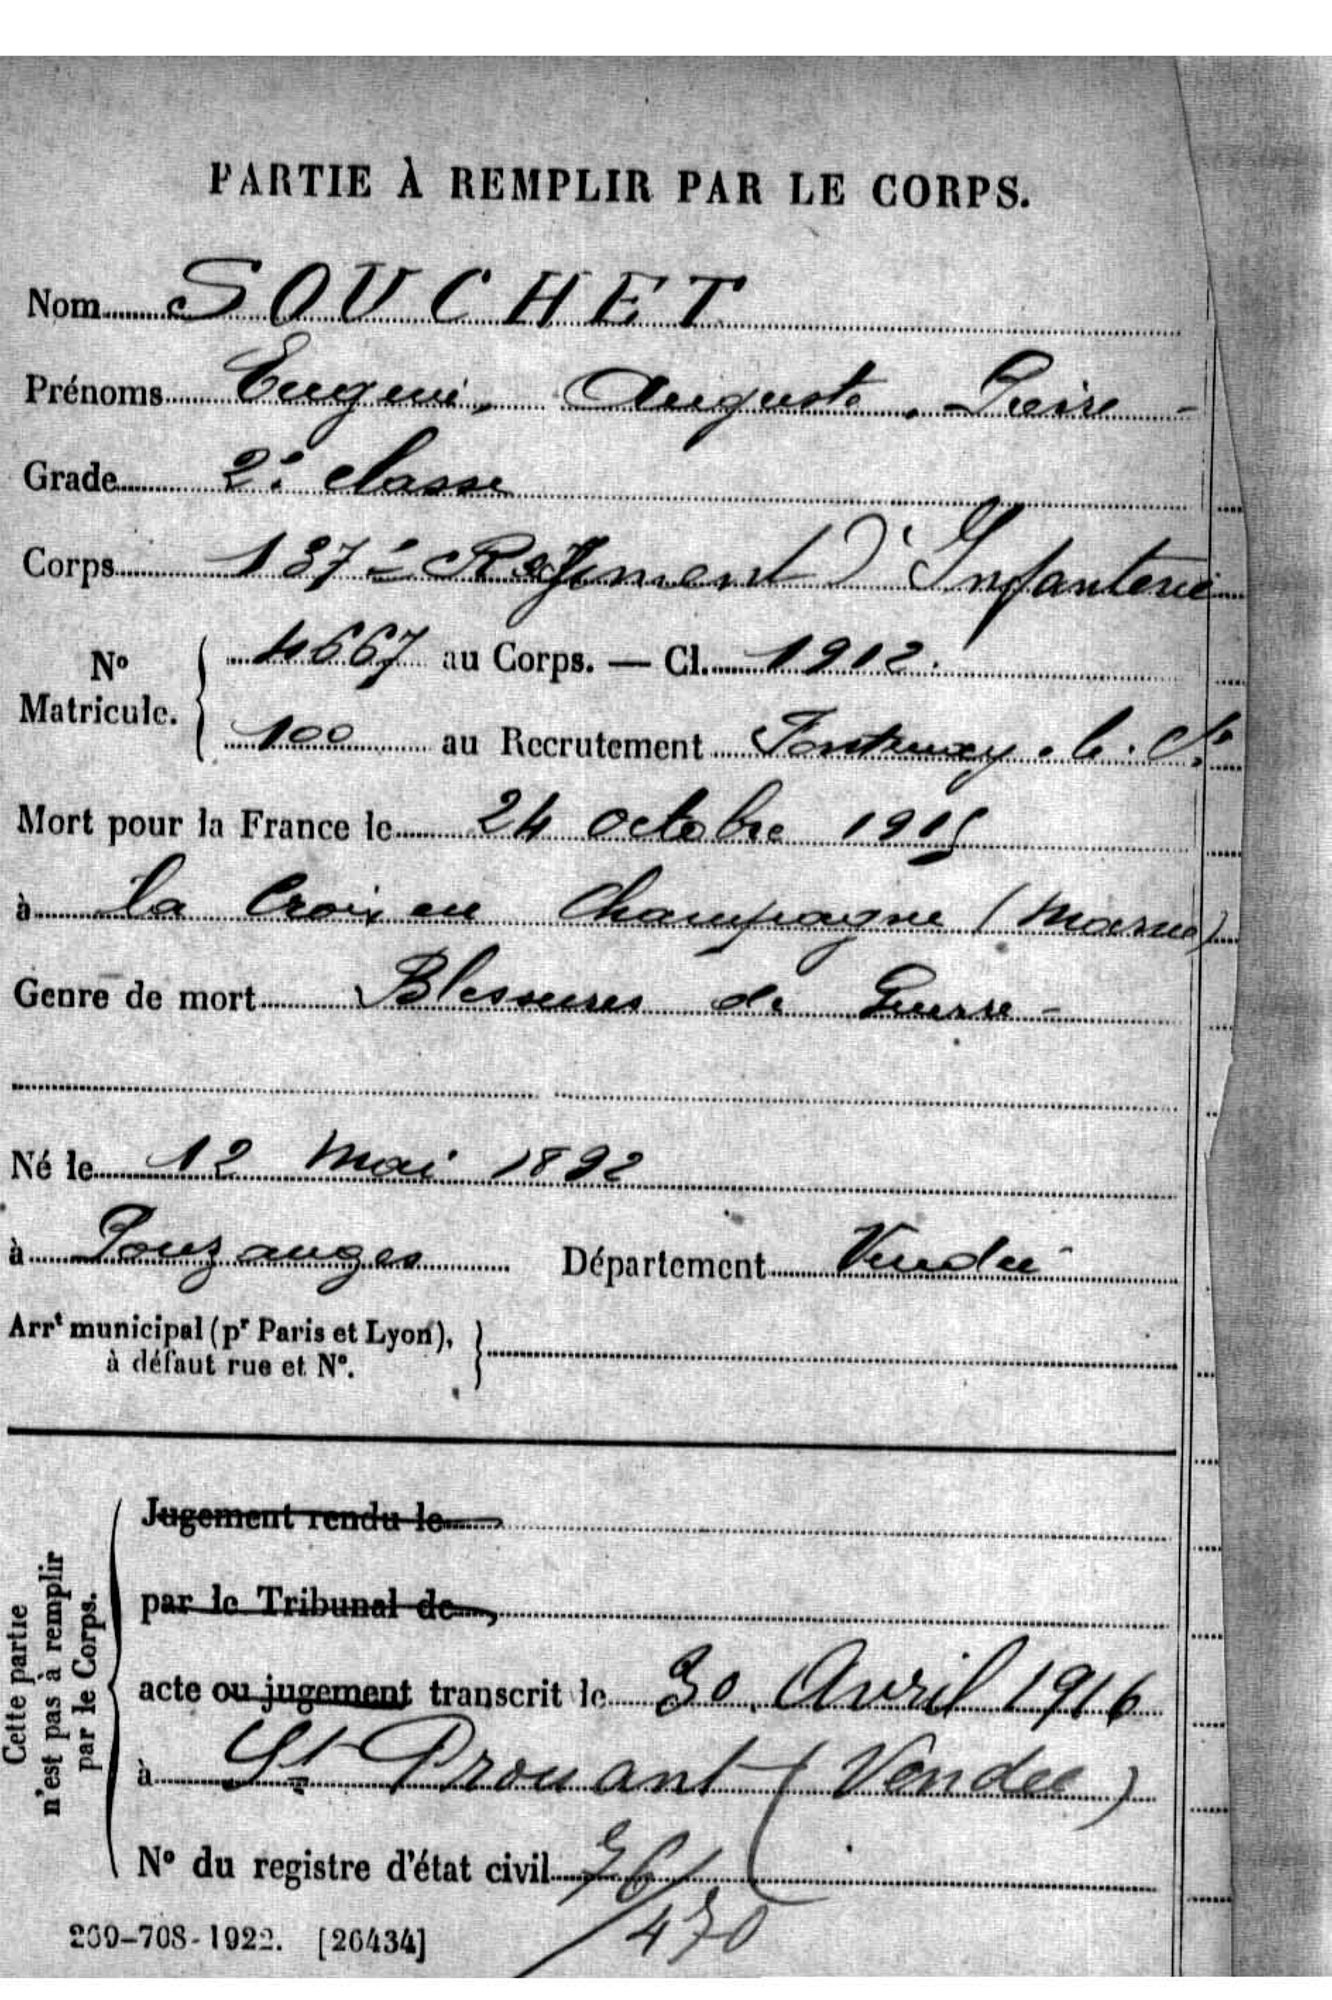 PARTIE À REMPLIR PAR LE CORPS.
Nom SOUCHET
Prénoms Eugène, Auguste, Pierre -
Grade 2e classe
Corps 137e Régiment d'Infanterie
No Matricule. { 4667 au Corps. — Cl. 1912.
100 au Recrutement Fontenay-le-Cte
Mort pour la France le 24 octobre 1915
à la Croix en Champagne (Marne)
Genre de mort Blessures de Guerre -
Né le 12 Mai 1892
à Pouzauges Département Vendée
Arrt municipal (pr Paris et Lyon),
à défaut rue et No.
Cette partie n'est pas à remplir par le Corps.
Jugement rendu le
par le Tribunal de
acte ou jugement transcrit le 30 Avril 1916
à St Prouant (Vendée)
No du registre d'état civil
269-708-1922. [26434]